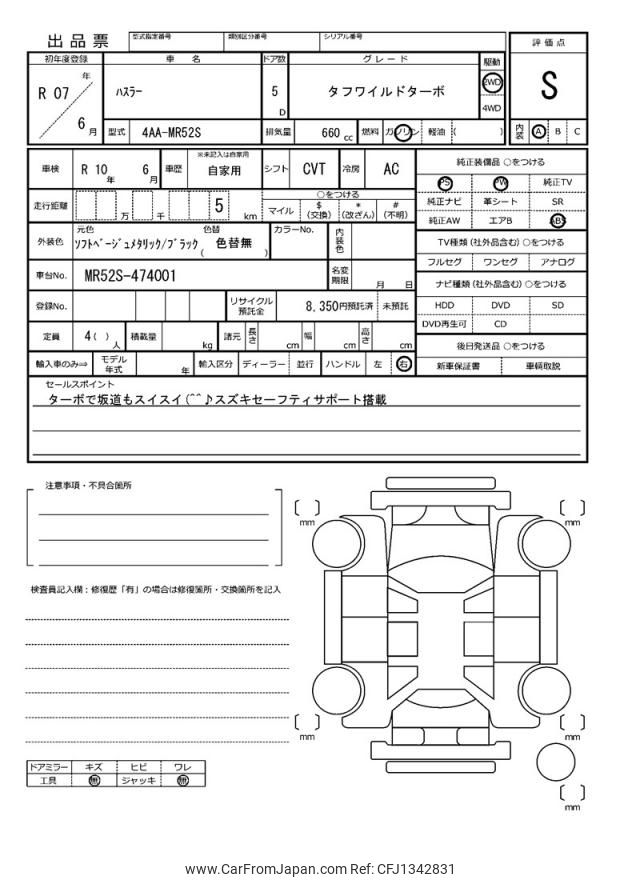 出品票 型式指定番号 類別区分番号 シリアル番号
初年度登録 車名 ドア数 グレード 駆動 評価点
R 07 年 6 月 ハスラー 5 D タフワイルドターボ 2WD 4WD S
型式 4AA-MR52S 排気量 660 cc 燃料 ガソリン 軽油 ( ) 内装 A B C
車検 R 10 年 6 月 車歴 ※未記入は自家用 自家用 シフト CVT 冷房 AC 純正装備品 ○をつける
PS PW 純正TV
走行距離 万 千 5 km ○をつける
マイル $ (交換) * (改ざん) # (不明)
純正ナビ 革シート SR
純正AW エアB ABS
外装色 元色 ソフトベージュメタリック/ブラック 色替 ( 色替無 ) カラーNo. 内装色
TV種類 (社外品含む) ○をつける
フルセグ ワンセグ アナログ
車台No. MR52S-474001 名変期限 月 日
ナビ種類 (社外品含む) ○をつける
登録No. リサイクル預託金 8,350円預託済 未預託
HDD DVD SD
DVD再生可 CD
定員 4( ) 人 積載量 kg 諸元 長さ cm 幅 cm 高さ cm
後日発送品 ○をつける
輸入車のみ⇒ モデル年式 年 輸入区分 ディーラー 並行 ハンドル 左 右
新車保証書 車輌取説
セールスポイント
ターボで坂道もスイスイ(^^♪スズキセーフティサポート搭載
注意事項・不具合箇所
mm
mm
検査員記入欄:修復歴「有」の場合は修復箇所・交換箇所を記入
mm
mm
ドアミラー キズ ヒビ ワレ
工具 無 ジャッキ 無
mm
www.CarFromJapan.com Ref: CFJ1342831